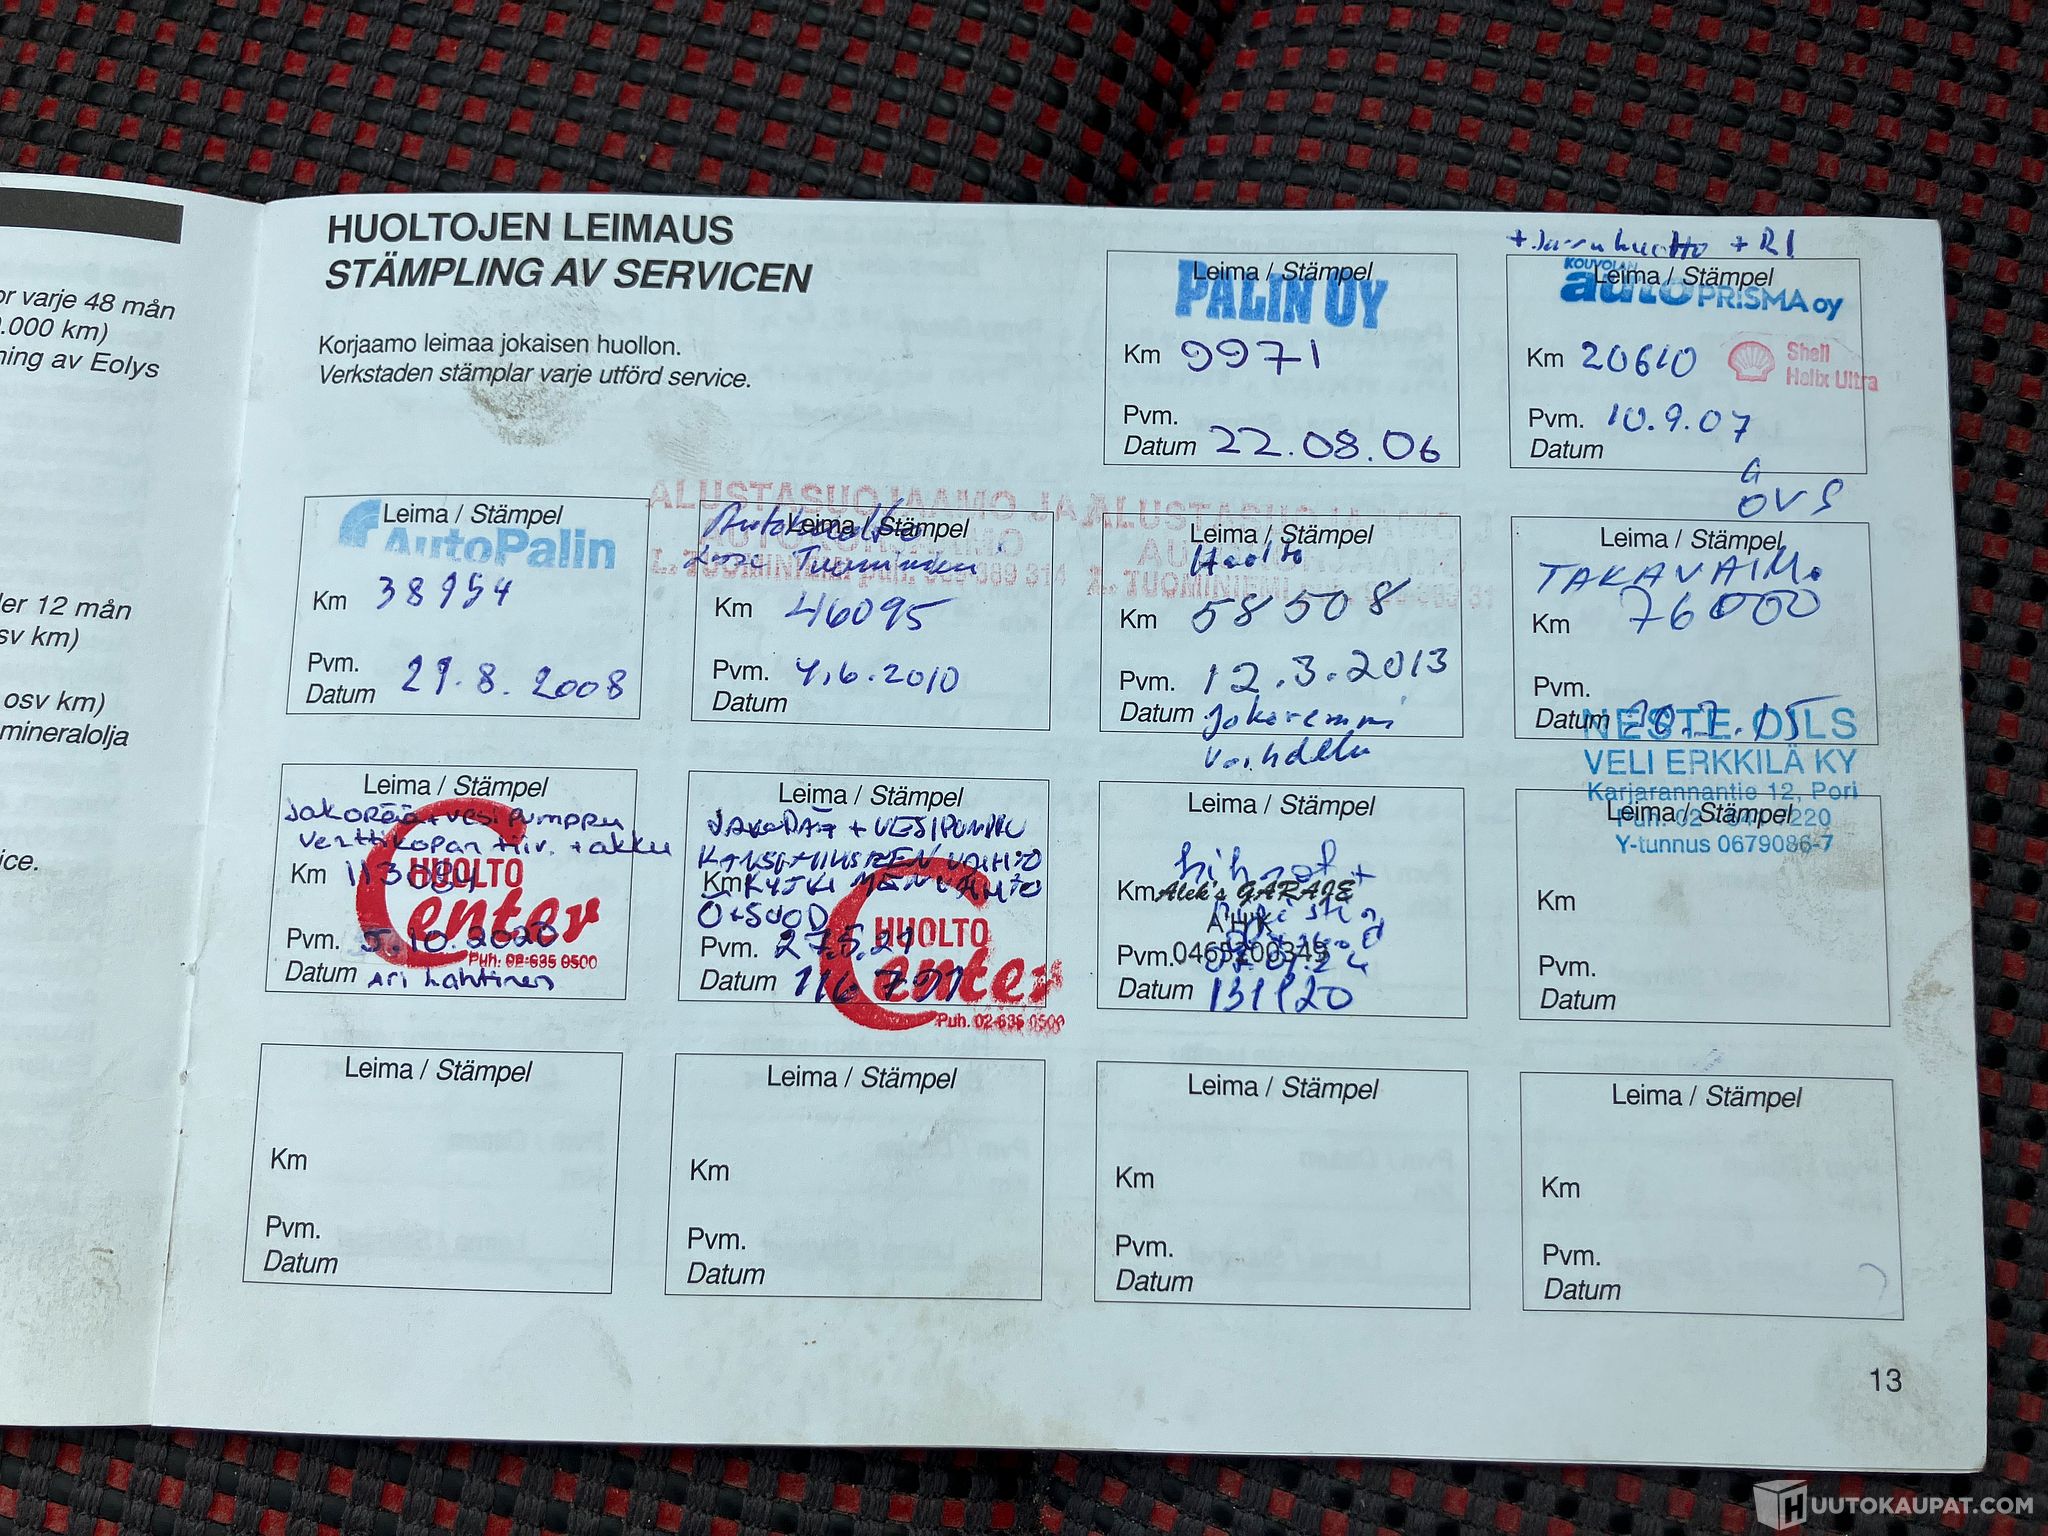 or varje 48 mån
0.000 km)
ning av Eolys
ler 12 mån
sv km)
osv km)
mineralolja
ice.
HUOLTOJEN LEIMAUS
STÄMPLING AV SERVICEN
Korjaamo leimaa jokaisen huollon.
Verkstaden stämplar varje utförd service.
Leima / Stämpel
PALIN OY
Km 9971
Pvm.
Datum 22.08.06
+ Jarruhuolto +
Leima / Stämpel
KOUVOLAN
auto PRISMA oy
Km 20610
Shell
Helix Ultra
Pvm. 10.9.07
Datum
Leima / Stämpel
AutoPalin
Km 38954
Pvm.
Datum 29.8.2008
ALUSTASUOJAAMO JA
AUTOKORJAAMO
L. TUOMINIEMI puh.
Leima / Stämpel
Autohuolto
Tuominiemi
Km 46095
Pvm. 4.6.2010
Datum
ALUSTASUOJAAMO
L. TUOMINIEMI
Leima / Stämpel
Huolto
Km 58508
Pvm. 12.3.2013
Datum Jakoremmi
vaihdettu
OVS
Leima / Stämpel
TAKAVAIM.
Km 76000
Pvm.
Datum
NESTE OILS
VELI ERKKILÄ KY
Karjarannantie 12, Pori
Y-tunnus 0679086-7
Leima / Stämpel
Jakopää + vesipumppu
Venttikopan tiiv. + akku
Km 113.094
HUOLTO
Center
Puh. 02-635 0500
Pvm. 5.10.2020
Datum Ari Lahtinen
Leima / Stämpel
JAKOPÄÄ + VESIPUMPPU
VAIHTO
Km
Ö+SUOD
HUOLTO
Center
Puh. 02-635 0500
Pvm. 27.5.21
Datum 116.791
Leima / Stämpel
hihnat +
Km Alek's GARAGE
AHK
Pvm. 0465200349
Datum 131120
Leima / Stämpel
Km
Pvm.
Datum
Leima / Stämpel
Km
Pvm.
Datum
Leima / Stämpel
Km
Pvm.
Datum
Leima / Stämpel
Km
Pvm.
Datum
Leima / Stämpel
Km
Pvm.
Datum
13
HUUTOKAUPAT.COM